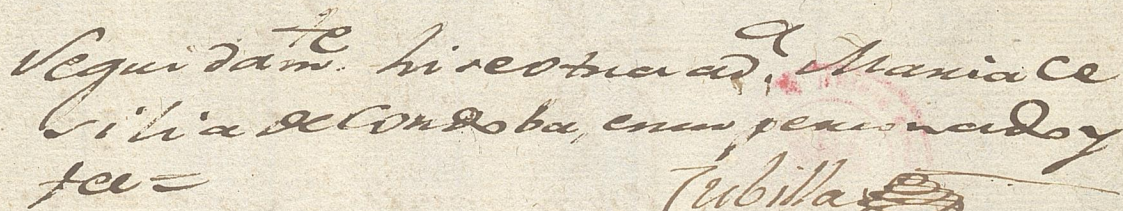 Seguidamte. hise otra a da. Maria Ce
silia de Cordoba, en su persona doy
fee=
Cubilla